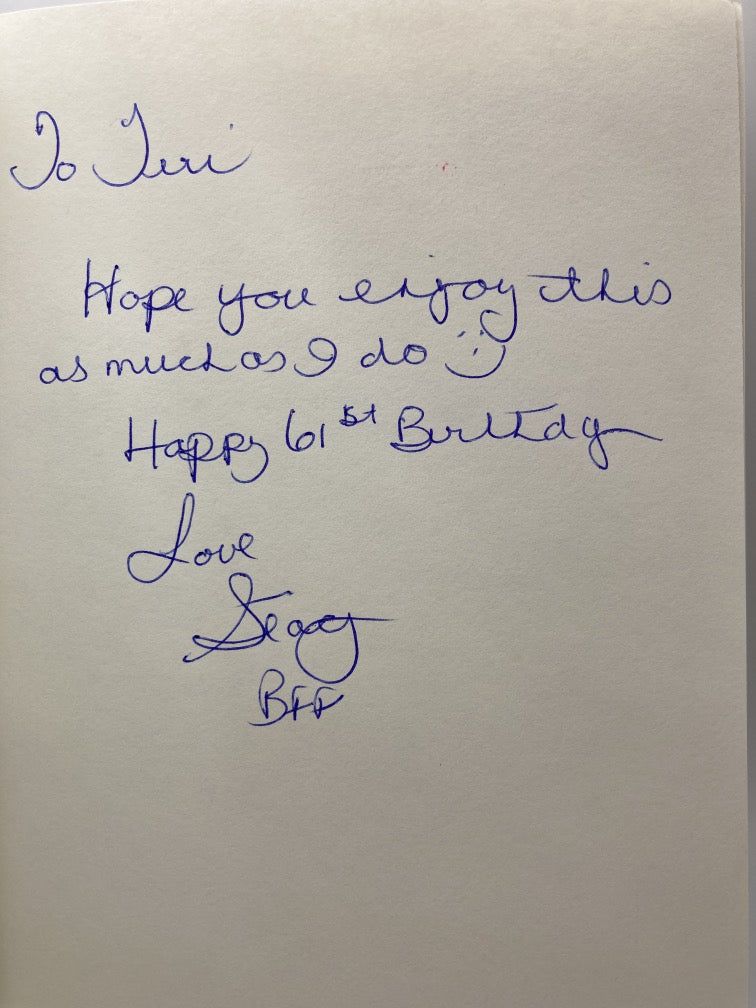 To Teri
Hope you enjoy this
as much as I do :)
Happy 61st Birthday
Love
BFF